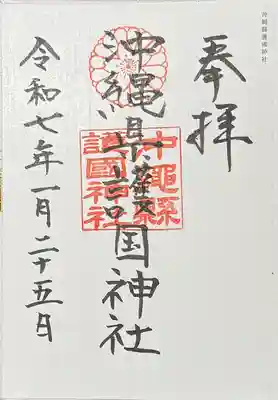 沖縄縣護國神社
奉拝
沖縄県護国神社
沖縄縣
護國神社
令和七年一月二十五日